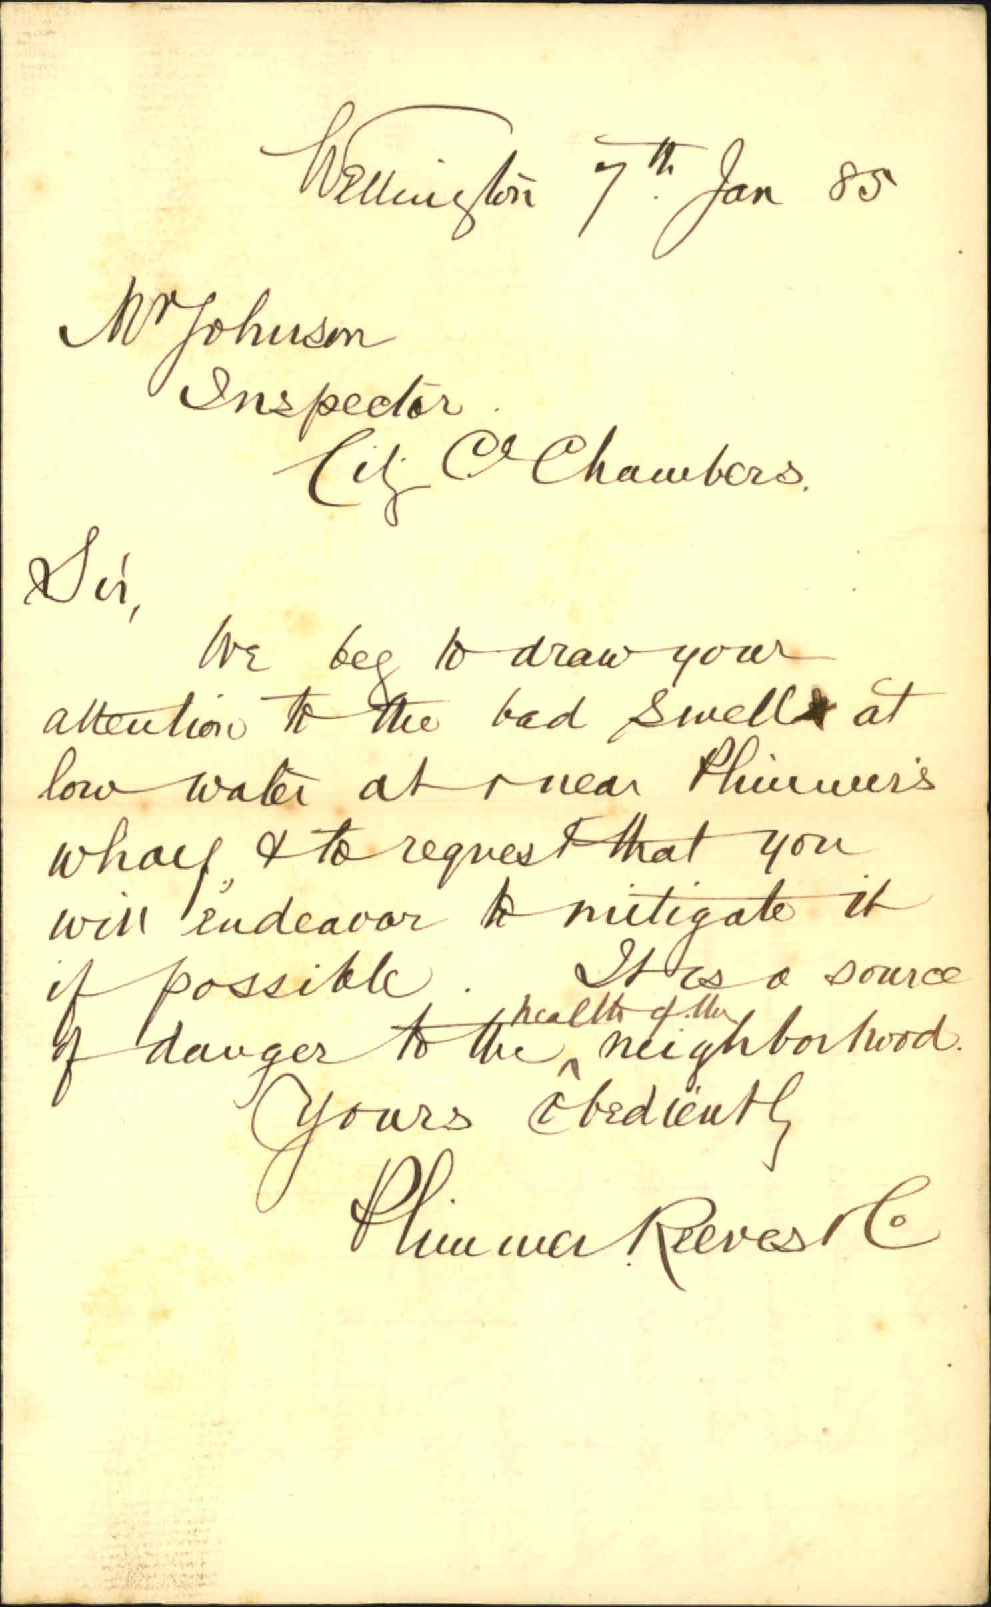 Wellington 7th. Jan 85
Mr Johnson
Inspector
City Cl Chambers.
Sir,
We beg to draw your
attention to the bad smell at
low water at & near Plimmer's
wharf, & to request that you
will endeavor to mitigate it
if possible. It is a source
of danger to the ^ health of the neighborhood.
Yours obediently
Plimmer Reeves & Co